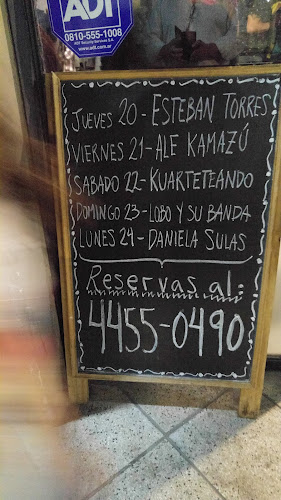 ADT
0810-555-1008
ADT Security Services S.A.
www.adt.com.ar
JUEVES 20 - ESTEBAN TORRES
VIERNES 21 - ALE KAMAZÚ
SABADO 22 - KUARTETEANDO
DOMINGO 23 - LOBO Y SU BANDA
LUNES 24 - DANIELA SULAS
Reservas al:
4455-0490